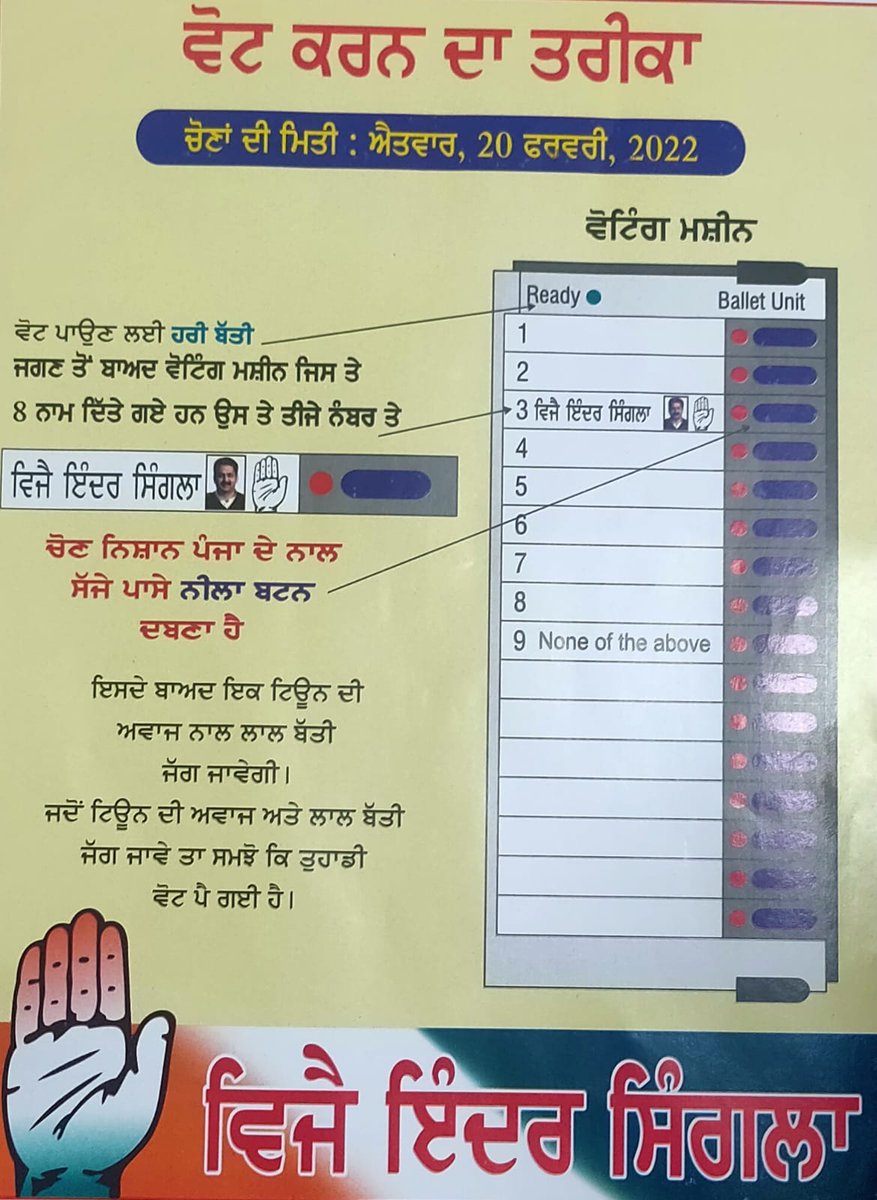 ਵੋਟ ਕਰਨ ਦਾ ਤਰੀਕਾ
ਚੋਣਾਂ ਦੀ ਮਿਤੀ : ਐਤਵਾਰ, 20 ਫਰਵਰੀ, 2022
ਵੋਟਿੰਗ ਮਸ਼ੀਨ
ਵੋਟ ਪਾਉਣ ਲਈ ਹਰੀ ਬੱਤੀ
ਜਗਣ ਤੋਂ ਬਾਅਦ ਵੋਟਿੰਗ ਮਸ਼ੀਨ ਜਿਸ ਤੇ
8 ਨਾਮ ਦਿੱਤੇ ਗਏ ਹਨ ਉਸ ਤੇ ਤੀਜੇ ਨੰਬਰ ਤੇ
ਵਿਜੈ ਇੰਦਰ ਸਿੰਗਲਾ
ਚੋਣ ਨਿਸ਼ਾਨ ਪੰਜਾ ਦੇ ਨਾਲ
ਸੱਜੇ ਪਾਸੇ ਨੀਲਾ ਬਟਨ
ਦਬਣਾ ਹੈ
ਇਸਦੇ ਬਾਅਦ ਇਕ ਟਿਊਨ ਦੀ
ਅਵਾਜ ਨਾਲ ਲਾਲ ਬੱਤੀ
ਜੱਗ ਜਾਵੇਗੀ।
ਜਦੋਂ ਟਿਊਨ ਦੀ ਅਵਾਜ ਅਤੇ ਲਾਲ ਬੱਤੀ
ਜੱਗ ਜਾਵੇ ਤਾ ਸਮਝੋ ਕਿ ਤੁਹਾਡੀ
ਵੋਟ ਪੈ ਗਈ ਹੈ।
Ready Ballet Unit
1
2
3 ਵਿਜੈ ਇੰਦਰ ਸਿੰਗਲਾ
4
5
6
7
8
9 None of the above
ਵਿਜੈ ਇੰਦਰ ਸਿੰਗਲਾ